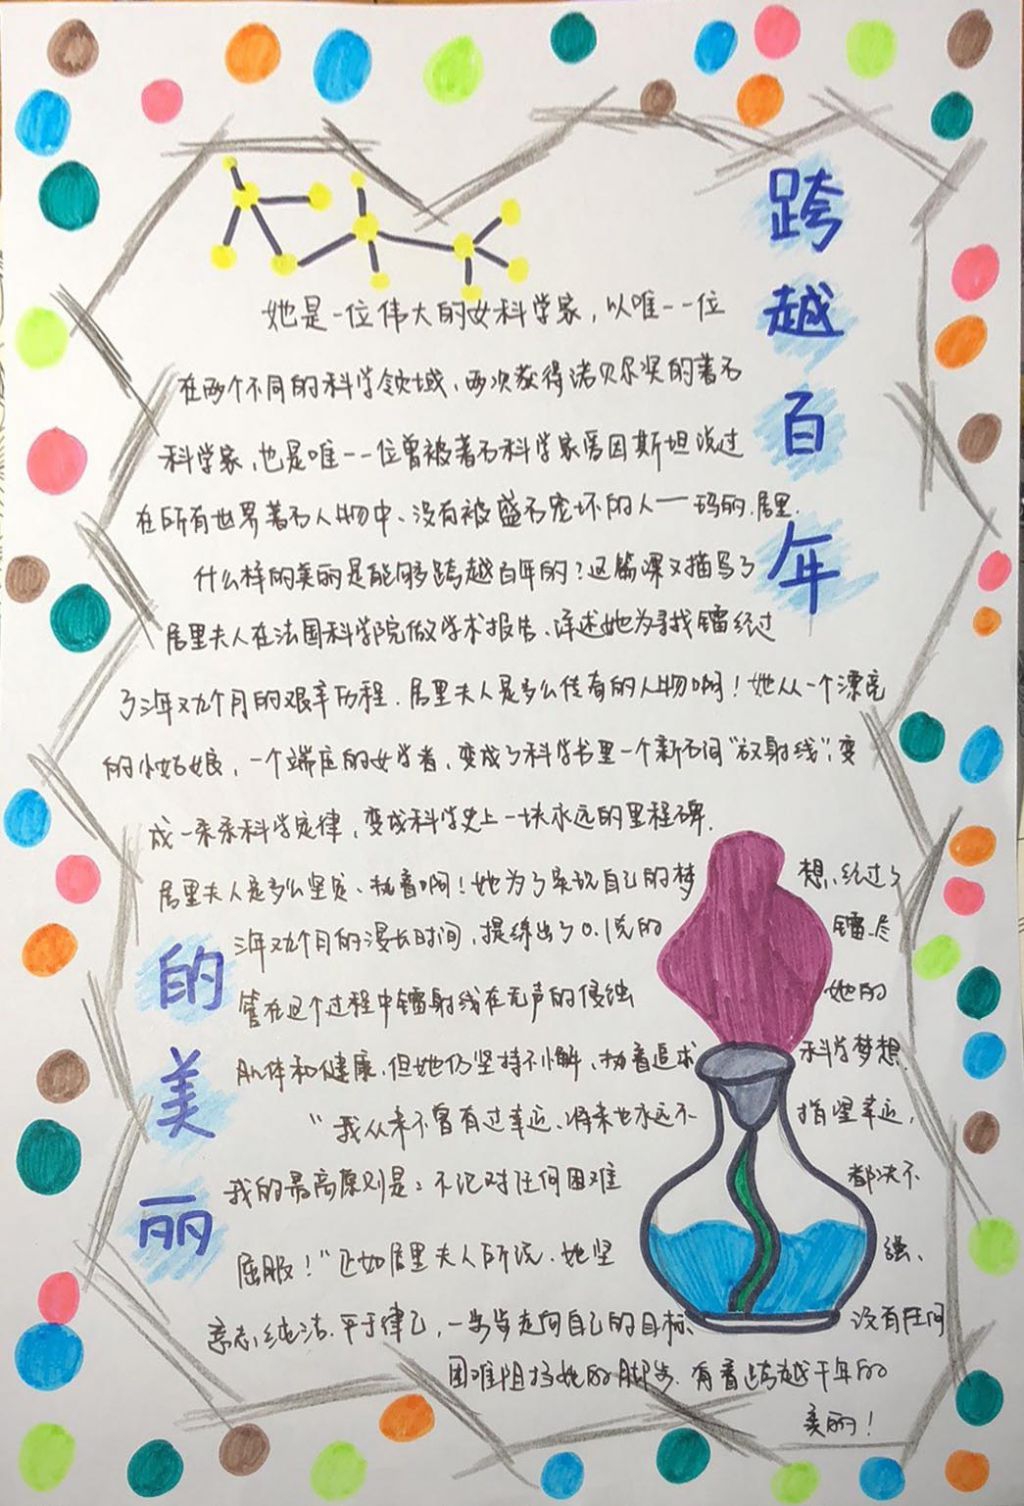 跨越百年
的美丽
她是一位伟大的女科学家，以唯一一位
在两个不同的科学领域、两次获得诺贝尔奖的著名
科学家，也是唯一一位曾被著名科学家爱因斯坦说过
在所有世界著名人物中、没有被盛名宠坏的人——玛丽.居里.
什么样的美丽是能够跨越百年的？这篇课文描写了
居里夫人在法国科学院做学术报告、详述她为寻找镭经过
了三年又九个月的艰辛历程.居里夫人是多么传奇的人物啊！她从一个漂亮
的小姑娘，一个端庄的女学者，变成了科学书里一个新名词“放射线”，变
成一条条科学定律，变成科学史上一块永远的里程碑.
居里夫人是多么坚定、执着啊！她为了实现自己的梦想，经过了
三年又九个月的漫长时间，提练出了0.1克的镭.尽
管在这个过程中镭射线在无声的侵蚀她的
肌体和健康，但她仍坚持不懈、执着追求科学梦想.
“我从来不曾有过幸运、将来也永远不指望幸运，
我的最高原则是：不论对任何困难都决不
屈服！”正如居里夫人所说、她坚强、
意志纯洁.严于律己，一步步走向自己的目标、没有任何
困难阻挡她的脚步.有着跨越千年的
美丽！